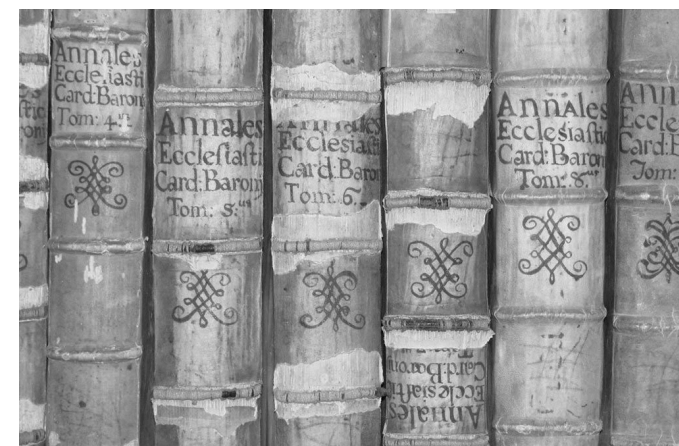 Annales
Ecclesiasti
Card:Baron
Tom: 4.us
Annales
Ecclesiasti
Card:Barony
Tom: 5.us
Annales
Ecclesiasti
Card:Baron
Tom: 6.
Annales
Ecclesiasti
Card:Baroni
Annales
Ecclesiastic
Card:Baron
Tom: 8.us
Ann
Eccle
Card:B
Tom: